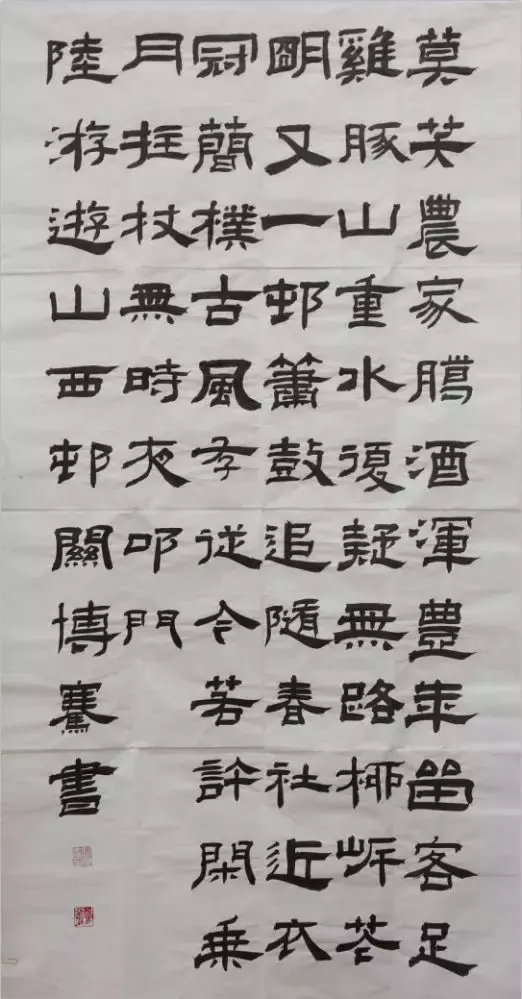 莫笑農家臘酒渾豊年留客足
雞豚山重水復疑無路柳岸花
明又一邨簫鼓追隨春社近衣
冠簡樸古風存從今若許閑乘
月拄杖無時夜叩門
陸游遊山西邨關博騫書